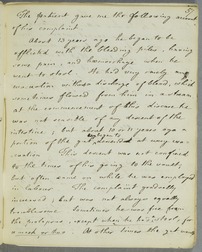 57
The patient gave me the following account
of his complaint.
About 13 years ago he began to be
afflicted with the bleeding piles, having
some pain, & hæmorrhage when he
went to stool. He had very rarely any
evacuation without discharge of blood, which
sometimes flowed from him in a stream
at the commencement of this disease. he
was not sensible of any descent of the
intestine; but about 10 or 11 years ago a
portion of the gut descended at every eva-
cuation. This descent was not confined
to the times of his going to the vault,
but often came on while he was employed
in labour. The complaint gradually
increased; but was not always equally
troublesome. Sometimes he was free from
the prolapsus, except when he had stool, for
a week or two. At other times the gut